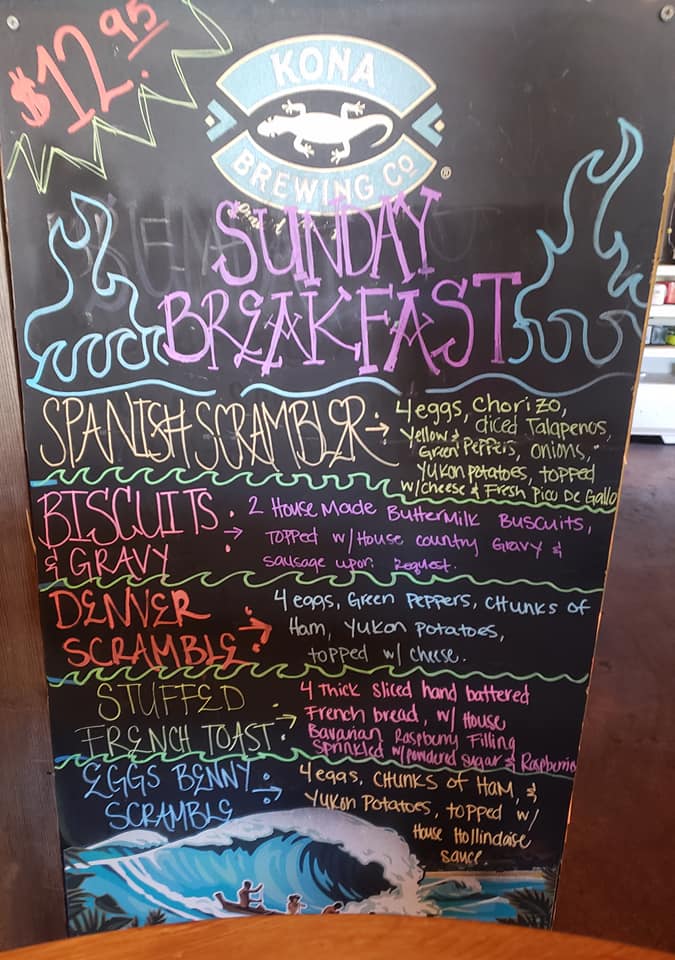 $12.95
KONA
BREWING CO ®
SUNDAY
BREAKFAST
SPANISH SCRAMBLER → 4 eggs, chorizo,
diced Jalapenos,
Yellow & Green Peppers, onions,
Yukon potatoes, topped
w/cheese & Fresh Pico De Gallo
BISCUITS
& GRAVY → 2 House Made Buttermilk Buscuits,
topped w/ House country Gravy &
sausage upon Request.
DENVER
SCRAMBLE → 4 eggs, Green Peppers, Chunks of
Ham, Yukon Potatoes,
topped w/ cheese.
STUFFED
FRENCH TOAST → 4 Thick sliced hand battered
French bread, w/ House
Bavarian Raspberry Filling
Sprinkled w/powdered sugar & Raspberries
EGGS BENNY
SCRAMBLE → 4 eggs, Chunks of Ham, &
Yukon Potatoes, topped w/
House Hollindaise
sauce.